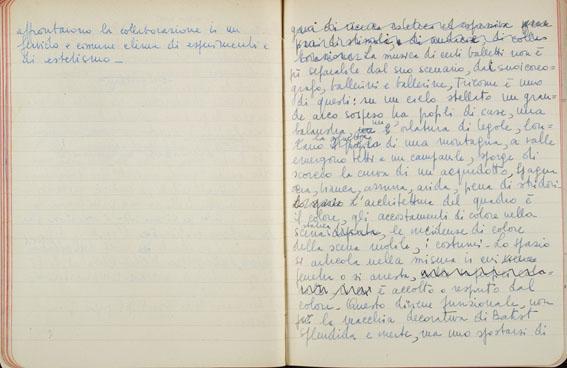 affrontarono la collaborazione in un
fervido e comune clima di esperimenti e
di estetismo —
gua di ricerca estetica ed espressiva
di stimolo, e di
borazione. La musica di certi balletti non è
più separabile dal suo scenario, dal suo coreo-
grafo, ballerini e ballerine, Tricorne è uno
di questi: su un cielo stellato un gran-
de arco sospeso tra profili di case, una
balaustra, un'orlatura di tegole, lon-
tano la groppa di una montagna, a valle
emergono tetti e un campanile, sporge di
scorcio la curva di un acquedotto, Spagna
bianca, azzurra, arida, piena di stridori
L'architettura del quadro è
il colore, gli accostamenti di colore nella
scena, le incidenze di colore
della scena mobile, i costumi - Lo spazio
si articola nella misura in cui
o si arresta,
è accolto o respinto dal
colore. Questo diviene funzionale, non
più la macchia decorativa di Bakst
splendida e inerte, ma uno spostarsi di